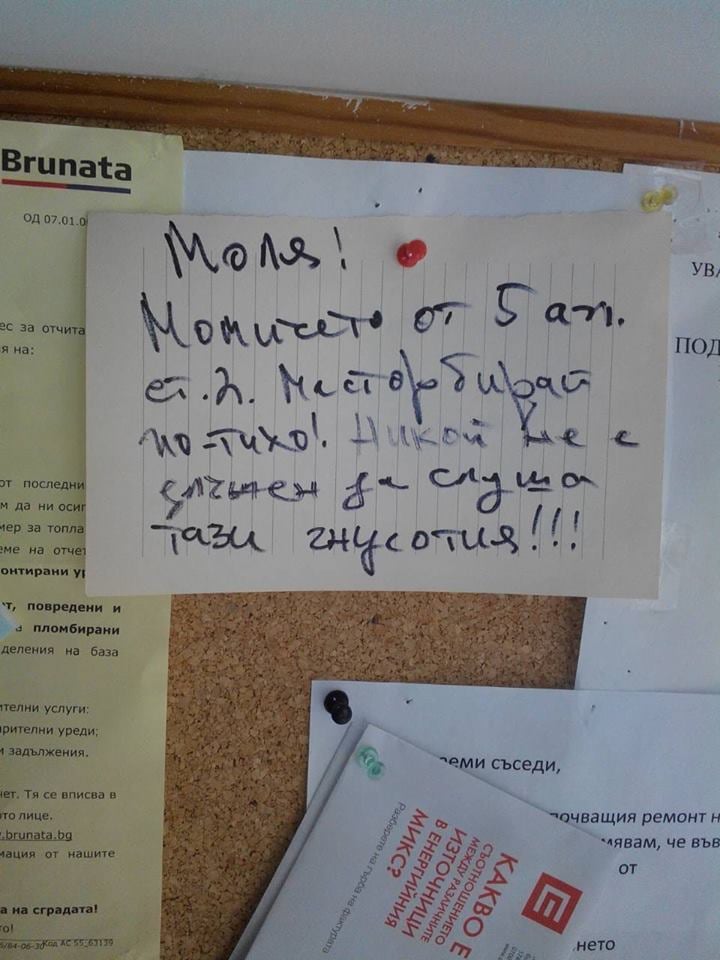 Brunata
ОД 07.01.0
ес за отчита
я на:
от последни
м да ни осиг
мер за топла
еме на отчет
онтирани ур
т, повредени и
пломбирани
деления на база
ителни услуги:
рителни уреди;
и задължения.
чет. Тя се вписва в
ото лице.
.brunata.bg
мация от нашите
а на сградата!
то!
6/84-06-30
Код АС 55_63139
Моля!
Момичето от 5 ап.
ет.2. Масторбирай
по-тихо! Никой не е
длъжен да слуша
тази гнусотия!!!
УВА
ПОД
еми съседи,
почващия ремонт н
мявам, че във
от
нето
КАКВО Е
СЪОТНОШЕНИЕТО
МЕЖДУ РАЗЛИЧНИТЕ
ИЗТОЧНИЦИ
В ЕНЕРГИЙНИЯ
МИКС?
Разберете на гърба на фактурата